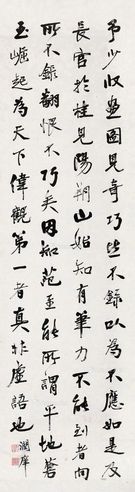 予少收畫圖見奇巧皆不錄以為不應如是及
長官於桂見陽朔山始知有筆力不能到者向
所不錄翻恨不巧矣因知范至能所謂平地蒼
玉崛起為天下偉觀第一者真非虛語也
潤庠